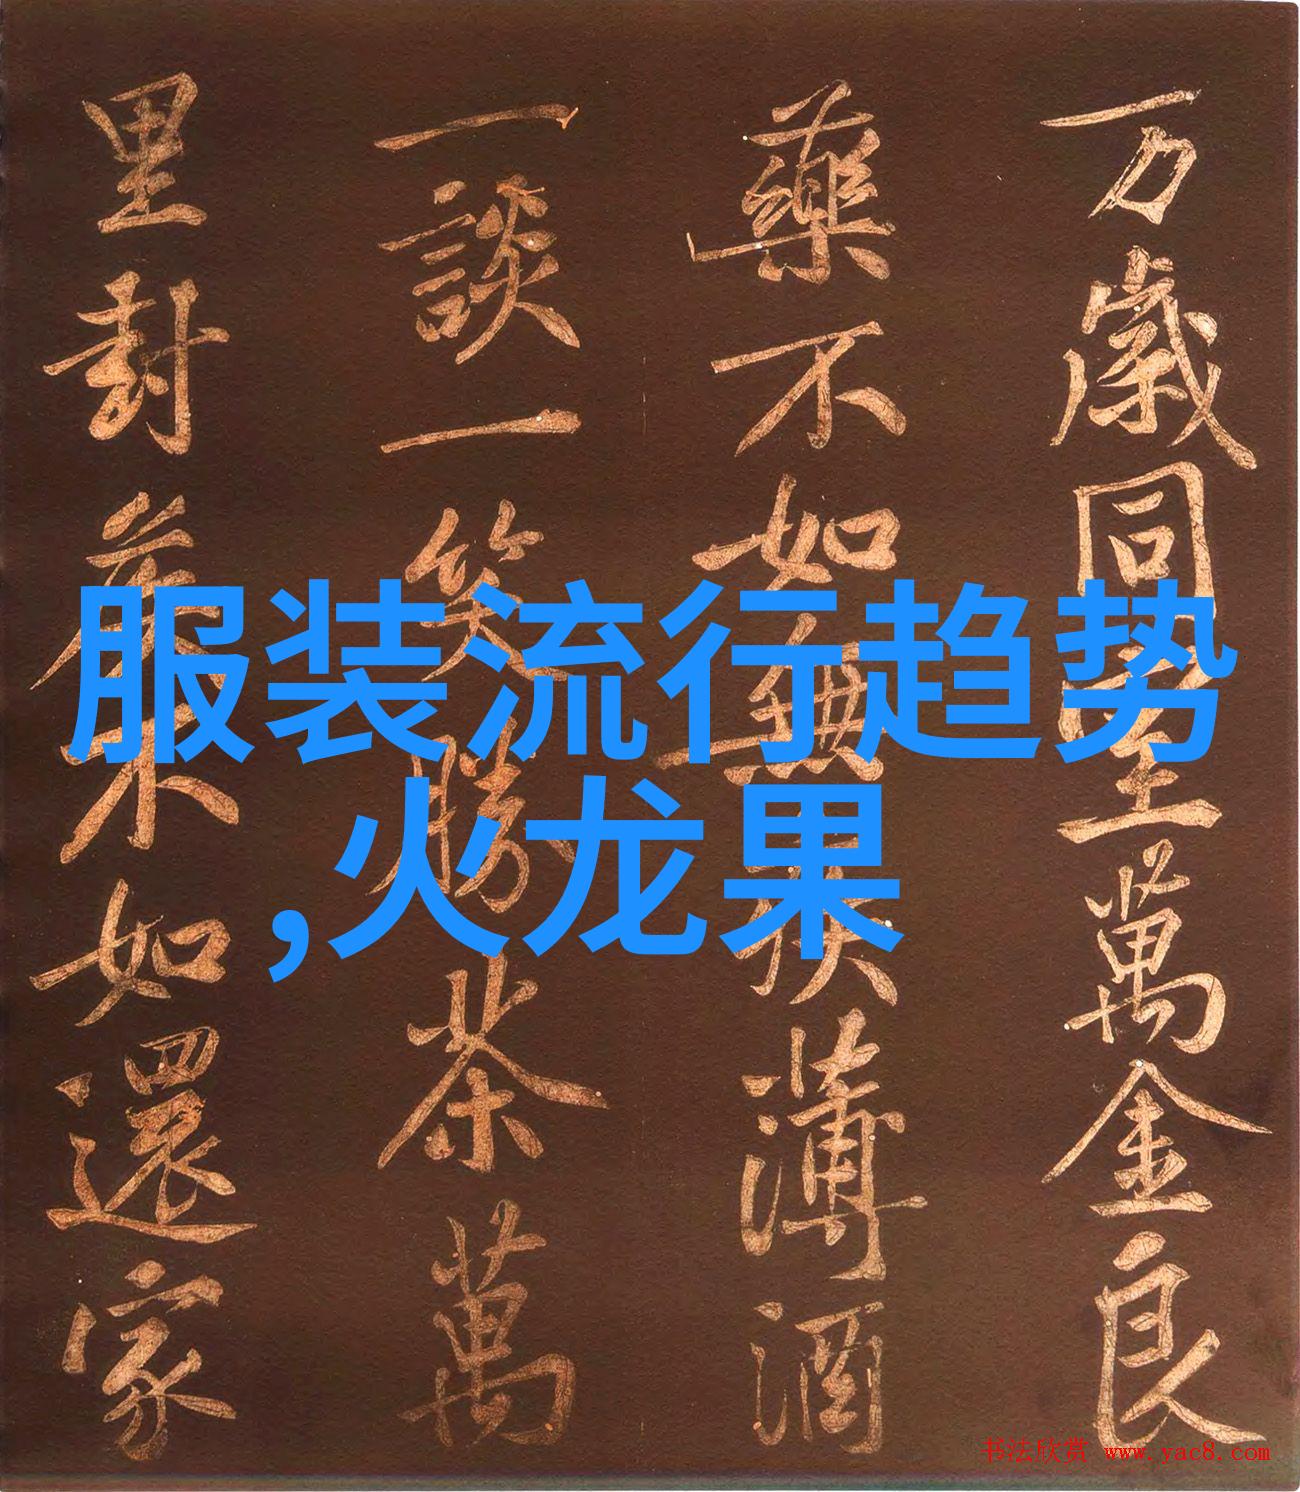 万歲同室萬金良
藥不如無疾薄酒
一談一笑勝茶萬
里封矦不如還家
服装流行趋势
,火龙果
书法欣赏 www.yac8.com